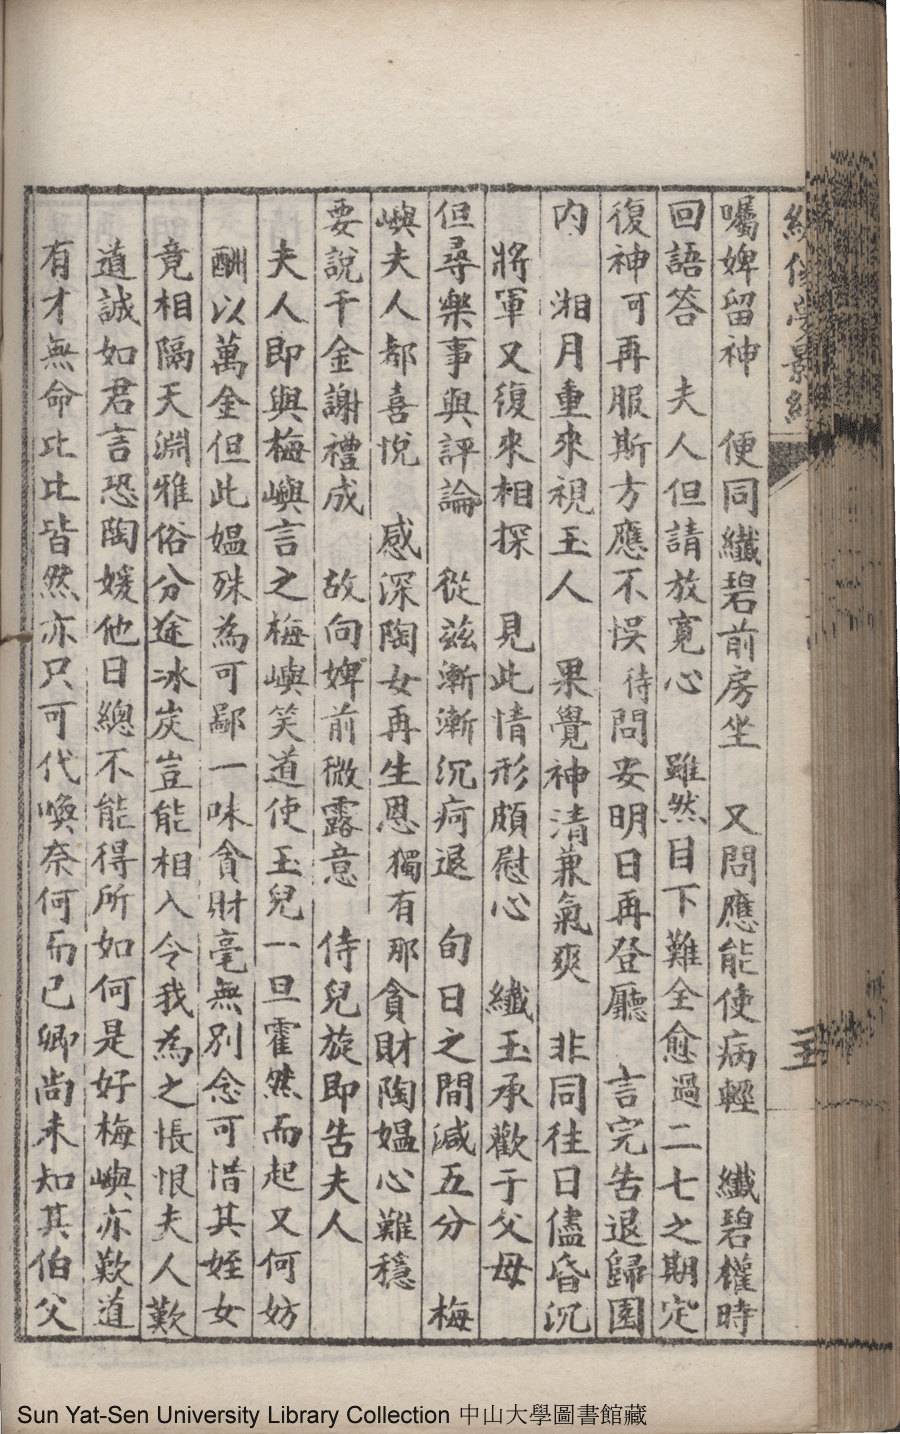 囑婢留神　便同纖碧前房坐　又問應能使病輕　纖碧權時
回語答　夫人但請放寬心　雖然目下難全愈過二七之期定
復神可再服斯方應不悞待問安明日再登廳　言完告退歸園
内　湘月重來視玉人　果覺神清兼氣爽　非同往日儘昏沉
將軍又復來相探　見此情形頗慰心　纖玉承歡于父母
但尋樂事與評論　從兹漸漸沉疴退　旬日之間減五分　梅
嶼夫人都喜悅　感深陶女再生恩獨有那貪財陶媼心難穩
要說千金謝禮成　故向婢前微露意　侍兒旋即告夫人
夫人即與梅嶼言之梅嶼笑道使玉兒一旦霍然而起又何妨
酬以萬金但此媼殊為可鄙一味貪財毫無別念可惜其姪女
竟相隔天淵雅俗分途冰炭豈能相入令我為之悵恨夫人歎
道誠如君言恐陶媛他日總不能得所如何是好梅嶼亦歎道
有才無命比比皆然亦只可代喚奈何而已卿尚未知其伯父
Sun Yat-Sen University Library Collection 中山大學圖書館藏